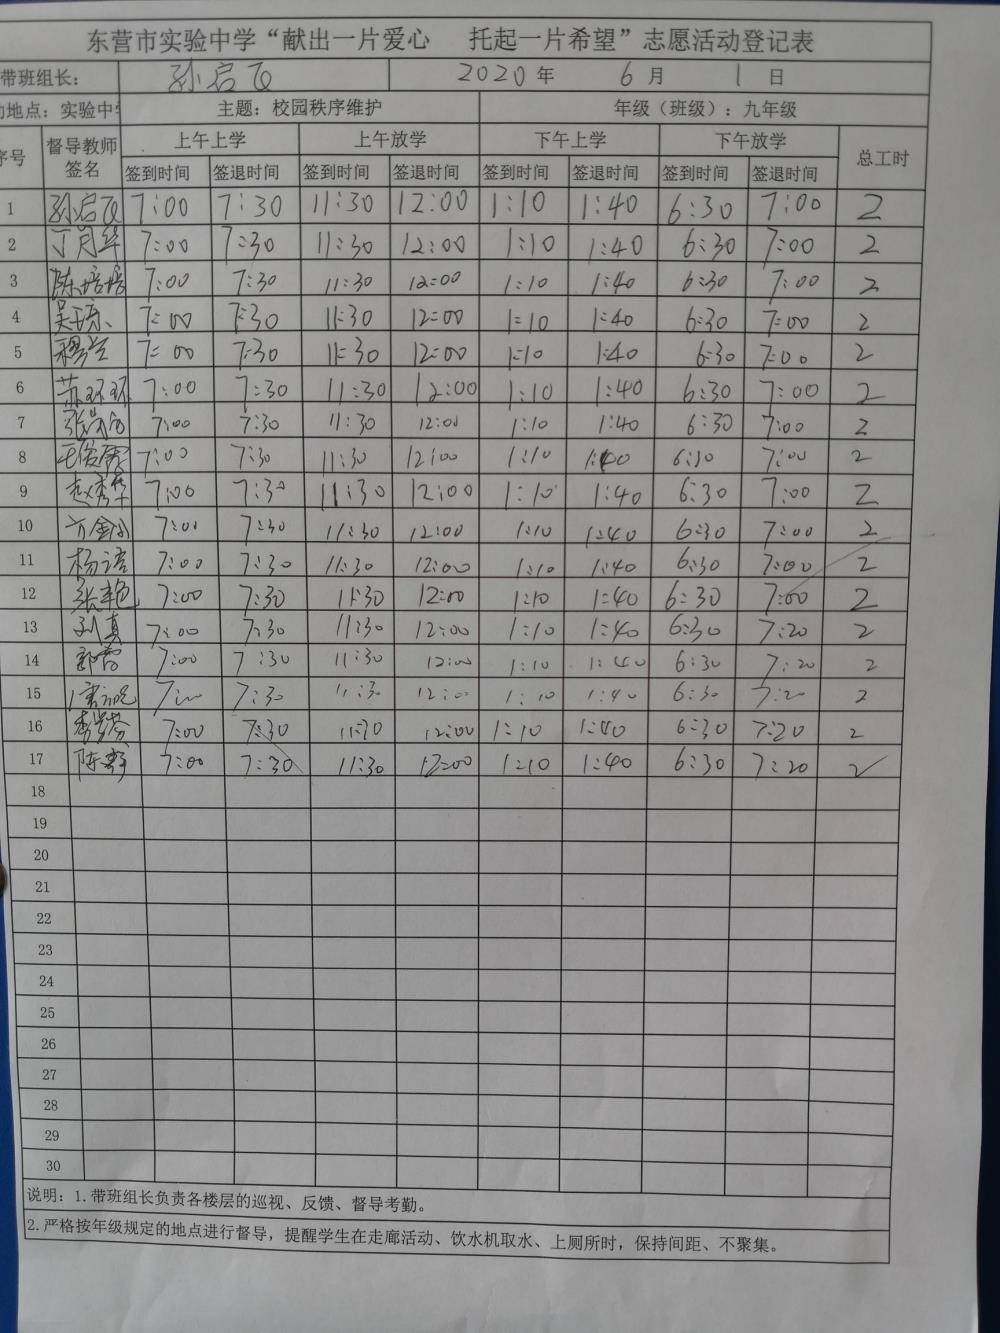 东营市实验中学“献出一片爱心 托起一片希望”志愿活动登记表
带班组长： 孙启飞 2020年 6月 1日
动地点：实验中学 主题：校园秩序维护 年级（班级）：九年级
序号 督导教师签名 上午上学 上午放学 下午上学 下午放学 总工时
签到时间 签退时间 签到时间 签退时间 签到时间 签退时间 签到时间 签退时间
1 孙启飞 7:00 7:30 11:30 12:00 1:10 1:40 6:30 7:00 2
2 丁月华 7:00 7:30 11:30 12:00 1:10 1:40 6:30 7:00 2
3 陈培培 7:00 7:30 11:30 12:00 1:10 1:40 6:30 7:00 2
4 7:00 7:30 11:30 12:00 1:10 1:40 6:30 7:00 2
5 7:00 7:30 11:30 12:00 1:10 1:40 6:30 7:00 2
6 苏环环 7:00 7:30 11:30 12:00 1:10 1:40 6:30 7:00 2
7 7:00 7:30 11:30 12:00 1:10 1:40 6:30 7:00 2
8 7:00 7:30 11:30 12:00 1:10 1:40 6:30 7:00 2
9 赵秀华 7:00 7:30 11:30 12:00 1:10 1:40 6:30 7:00 2
10 7:00 7:30 11:30 12:00 1:10 1:40 6:30 7:00 2
11 7:00 7:30 11:30 12:00 1:10 1:40 6:30 7:00 2
12 张艳 7:00 7:30 11:30 12:00 1:10 1:40 6:30 7:00 2
13 刘真 7:00 7:30 11:30 12:00 1:10 1:40 6:30 7:20 2
14 7:00 7:30 11:30 12:00 1:10 1:40 6:30 7:20 2
15 7:00 7:30 11:30 12:00 1:10 1:40 6:30 7:20 2
16 7:00 7:30 11:30 12:00 1:10 1:40 6:30 7:20 2
17 7:00 7:30 11:30 12:00 1:10 1:40 6:30 7:20 2
18
19
20
21
22
23
24
25
26
27
28
29
30
说明：1.带班组长负责各楼层的巡视、反馈、督导考勤。
2.严格按年级规定的地点进行督导，提醒学生在走廊活动、饮水机取水、上厕所时，保持间距、不聚集。